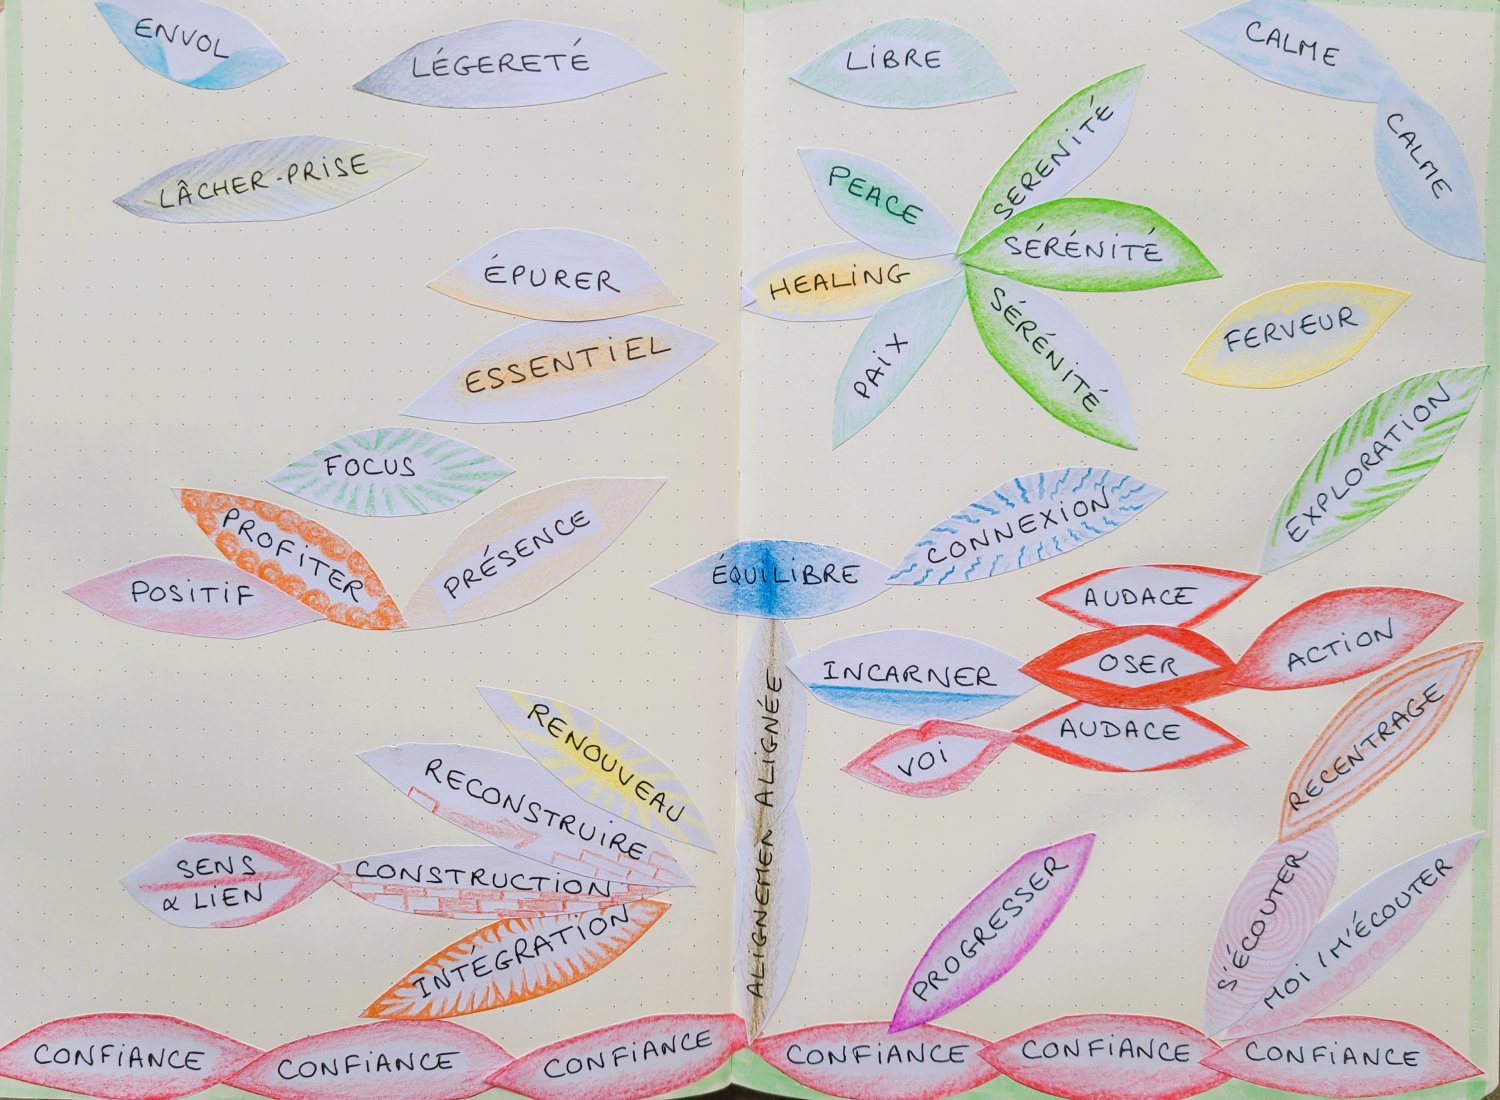 ENVOL
LÉGERETÉ
LÂCHER-PRISE
ÉPURER
ESSENTIEL
FOCUS
PROFITER
POSITIF
PRÉSENCE
RENOUVEAU
RECONSTRUIRE
SENS
& LIEN
CONSTRUCTION
INTÉGRATION
CONFIANCE
CONFIANCE
CONFIANCE
LIBRE
CALME
CALME
PEACE
SERENITÉ
SÉRÉNITÉ
HEALING
PAIX
SÉRÉNITÉ
FERVEUR
EXPLORATION
CONNEXION
ÉQUILIBRE
AUDACE
INCARNER
OSER
ACTION
AUDACE
VOI
RECENTRAGE
ALIGNEMEN ALIGNÉE
PROGRESSER
S'ÉCOUTER
MOI / M'ÉCOUTER
CONFIANCE
CONFIANCE
CONFIANCE